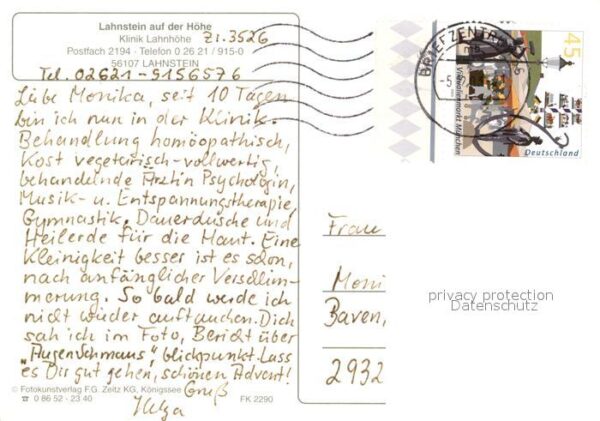 Lahnstein auf der Höhe
Klinik Lahnhöhe
Zi. 3526
Postfach 2194 · Telefon 0 26 21 / 915-0
56107 LAHNSTEIN
Tel. 02621-9156576
Liebe Monika, seit 10 Tagen
bin ich nun in der Klinik.
Behandlung homöopathisch,
Kost vegetarisch-vollwertig,
behandelnde Ärztin Psychologin,
Musik- u. Entspannungstherapie,
Gymnastik, Dauerdusche und
Heilerde für die Haut. Eine
Kleinigkeit besser ist es schon,
nach anfänglicher Verschlim-
merung. So bald werde ich
nicht wieder auftauchen. Dich
sah ich im Foto, Bericht über
"Augenschmaus", blickpunkt. Lass
es Dir gut gehen, schönen Advent!
Gruß
Helga
© Fotokunstverlag F.G. Zeitz KG, Königssee
☎ 0 86 52 - 23 40
FK 2290
BRIEFZENTRUM
45
Viktualienmarkt München
Deutschland
Frau
Moni
Baven,
2932
privacy protection
Datenschutz